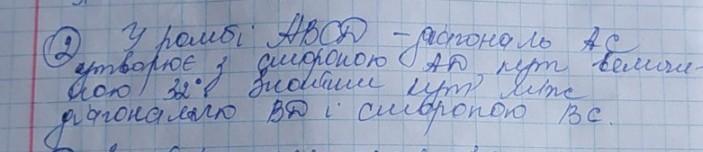 2 У ромбі ABCD – діагональ AC
утворює з стороною AD кут величи-
ною 32°. Знайти кут між
діагоналлю BD і стороною BC.